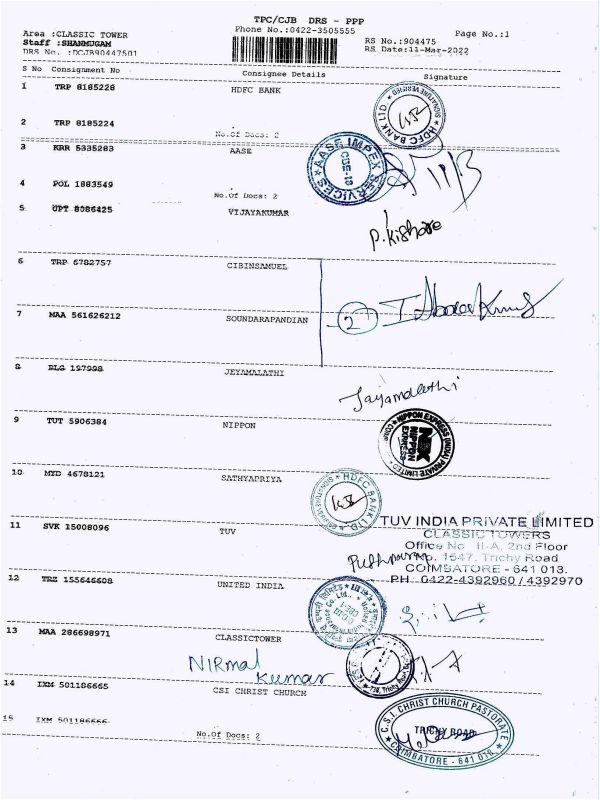 TPC/CJB DRS - PPP
Area :CLASSIC TOWER
Phone No.:0422-3505555
Page No.:1
Staff :SHANMUGAM
RS No.:904475
DRS No. :DCJB90447501
RS Date:11-Mar-2022
S No Consignment No Consignee Details Signature
1 TRP 8185228 HDFC BANK
SIGNATURE VERIFIED
HDFC BANK LTD.
2 TRP 8185224
No.Of Docs: 2
3 KRR 5335283 AASE
AASE IMPEX SERVICES
CBE-18
4 POL 1883549
No.Of Docs: 2
5 OPT 8086425 VIJAYAKUMAR
P.Kishore
6 TRP 6782757 CIBINSAMUEL
7 MAA 561626212 SOUNDARAPANDIAN
2
8 BLG 197998 JEYAMALATHI
Jayamalathi
9 TUT 5906384 NIPPON
NIPPON EXPRESS (INDIA) PRIVATE LIMITED
NIPPON EXPRESS
10 MYD 4678121 SATHYAPRIYA
HDFC BANK LTD.
11 SVK 15008096 TUV
TUV INDIA PRIVATE LIMITED
CLASSIC TOWERS
Office No. II-A, 2nd Floor
No. 1547, Trichy Road
COIMBATORE - 641 018.
PH : 0422-4392960 / 4392970
12 TRZ 155646608 UNITED INDIA
13 MAA 286698971 CLASSICTOWER
NIRmal
Kumar
14 IXM 501186665 CSI CHRIST CHURCH
15 IXM 501186666
No.Of Docs: 2
C.S.I. CHRIST CHURCH PASTORATE
TRICHY ROAD
COIMBATORE - 641 018.